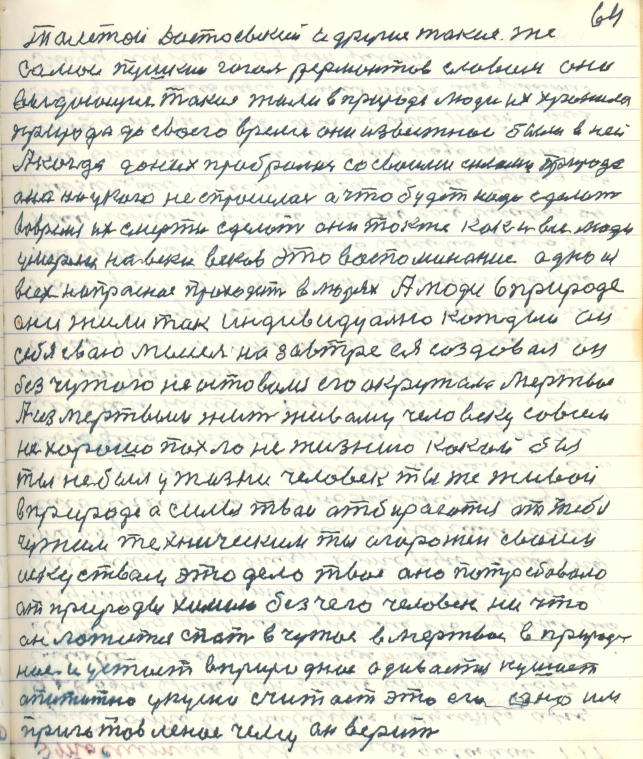 64
Талстой Достоевский и другие такие же
самои пушкин гогол лермонтов словом они
выдающие такие жили в природе люди их хронила
природа до своего время они известное были в ней
А когда доних пробралис сосвоими силами природа
она ни укого не спросилас а что будет надо сделат
вовремя их смерти сделат они также как и вси люди
умерли на веки веков это воспоминание одно и
всех напрасное проходит в людях А люди в природе
они жили так индивидуално каждый он
себя сваю на завтре ся создовал он
без чужого не астовалс его акружала мертвое
А из мертвым жит живому человеку совсем
не хорошо пахло не жизнию какой бы
ты не был у жизни человек ты же живой
в природе а силы твои атбираются от тебя
чужим техническим ты агорожен своим
искуством это дело твое оно потребовало
от природы химию без чего человек ни что
он ложится спат в чужое в мертвое в природ
ное и устает в природное одивается кушает
апититно укусно считает это его оно им
приготовленое чему он верит